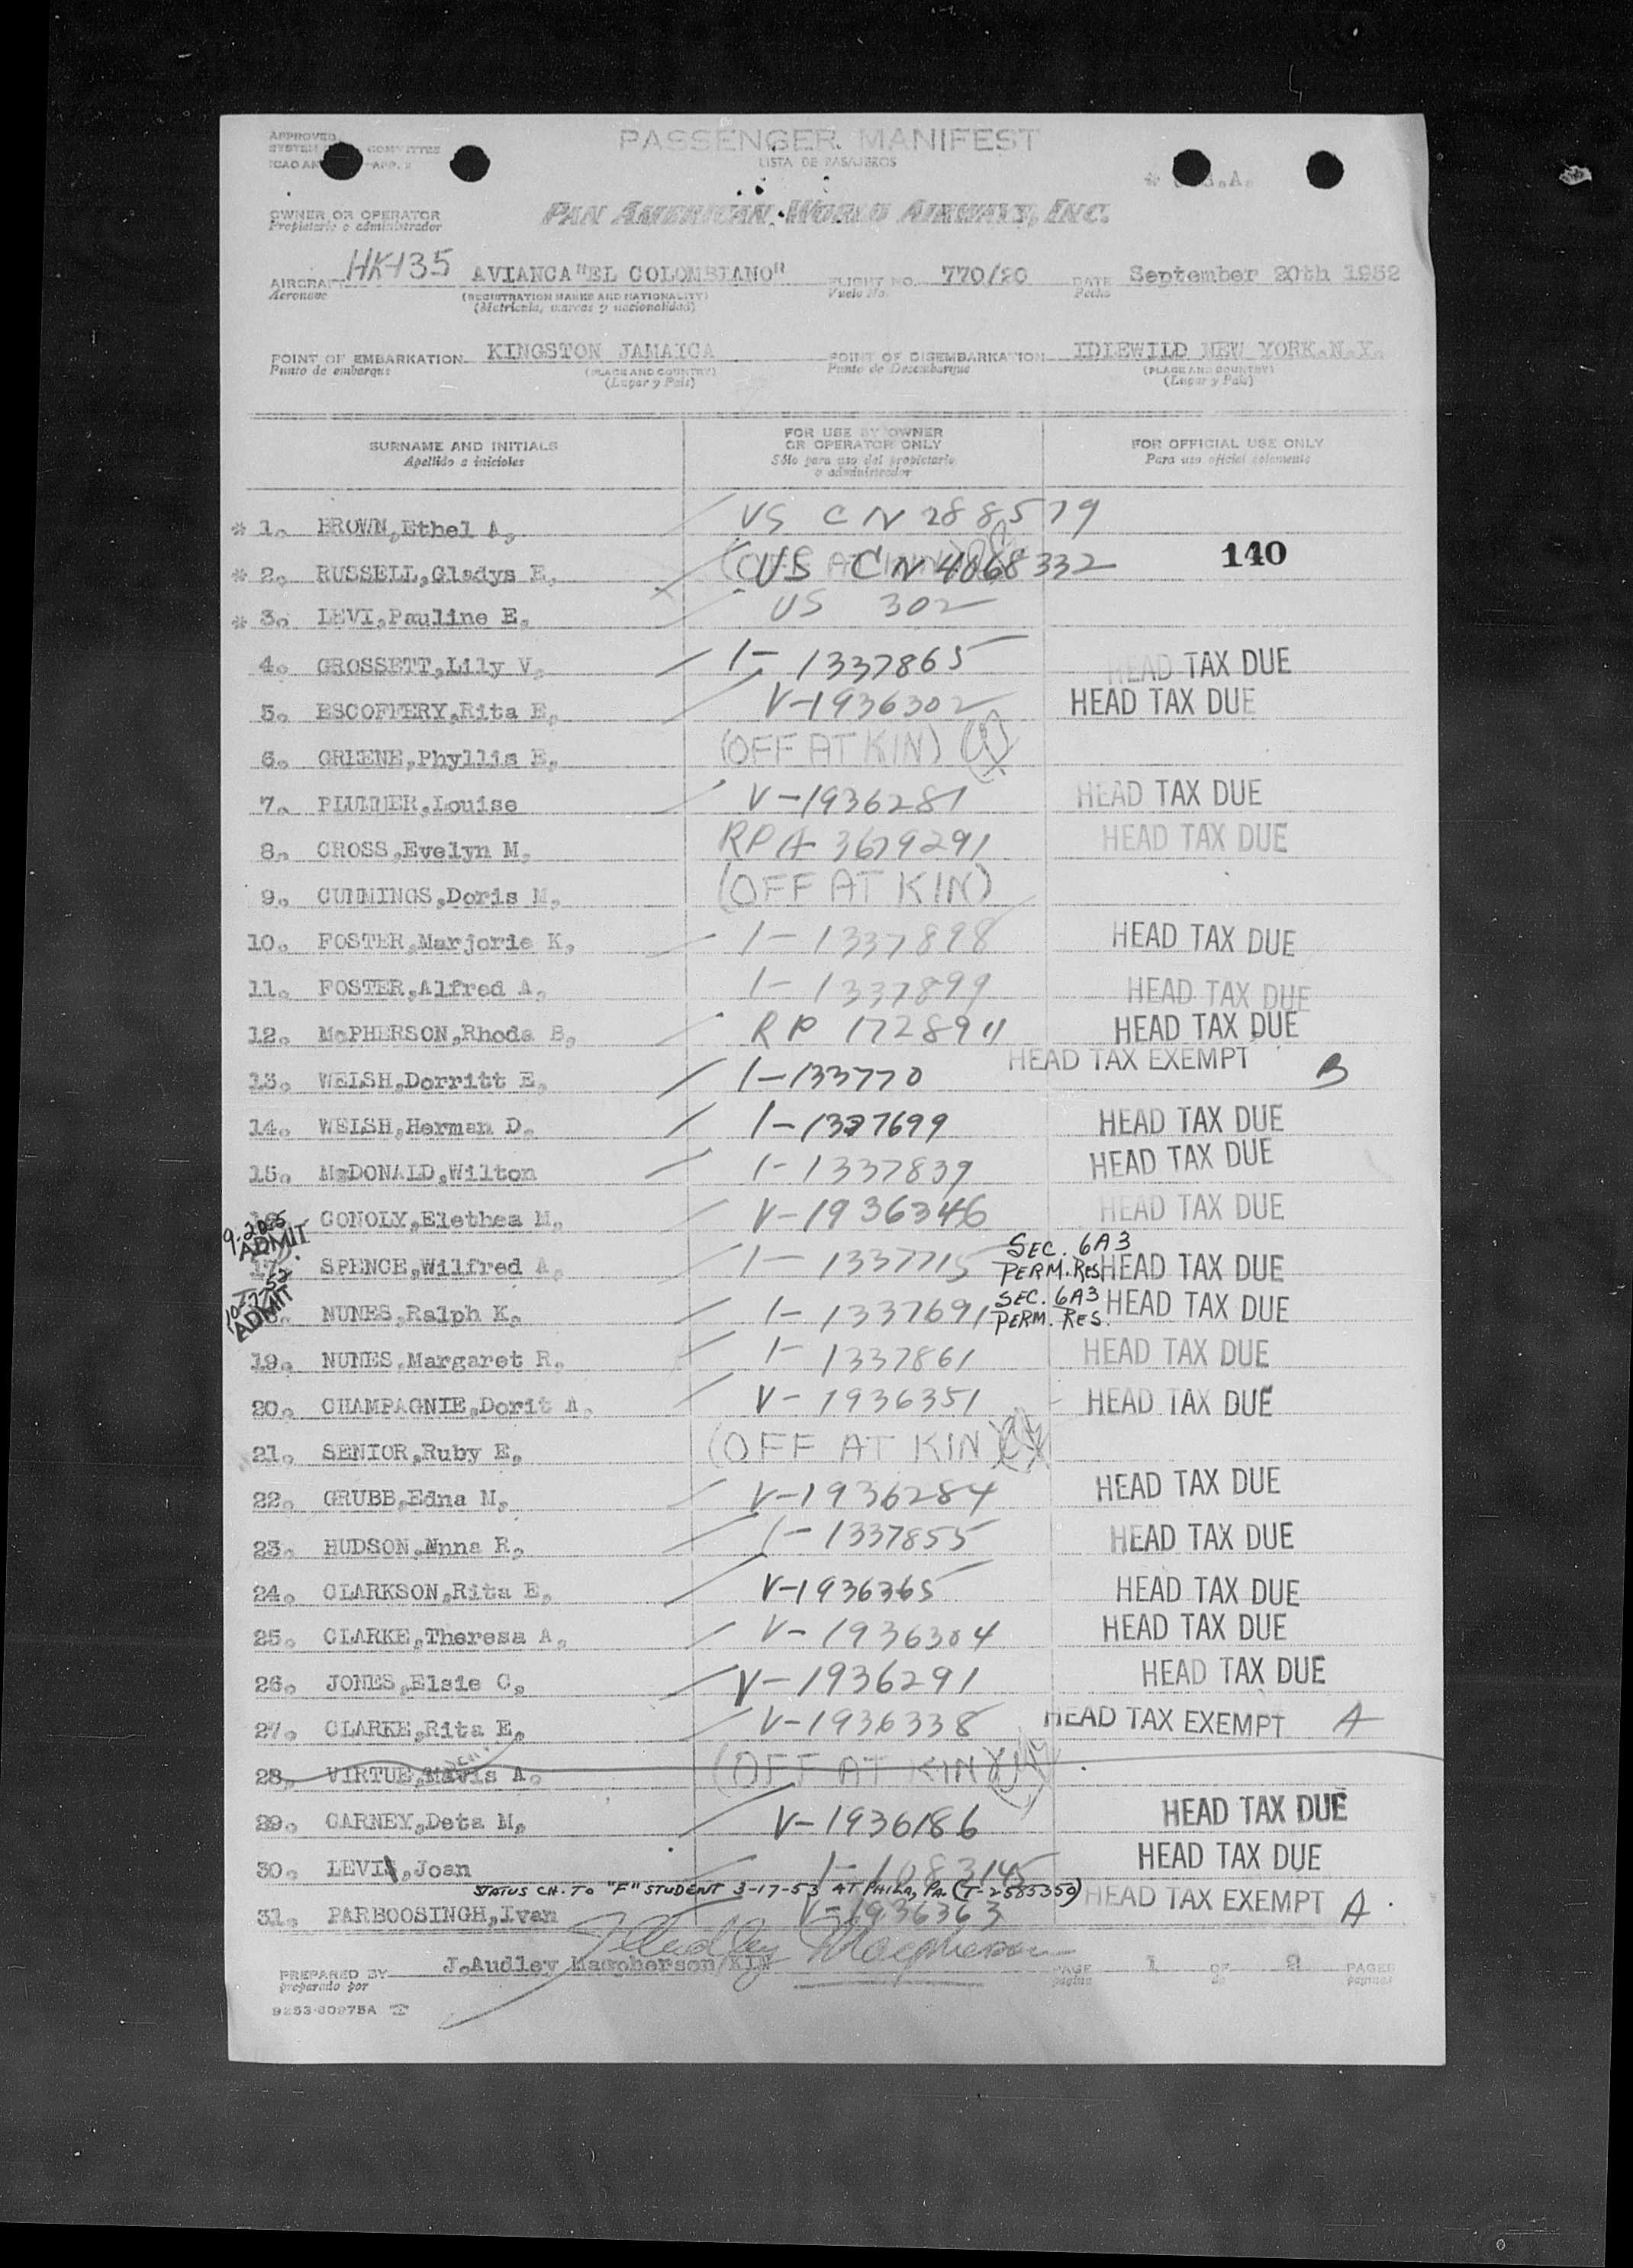 APPROVED
SYSTEM COMMITTEE
ICAO AN APP. 2
PASSENGER MANIFEST
LISTA DE PASAJEROS
* .A.
OWNER OR OPERATOR
Propietario o administrador
PAN AMERICAN WORLD AIRWAYS, INC.
AIRCRAFT HK135 AVIANCA "EL COLOMBIANO" FLIGHT NO. 770/20 DATE September 20th 1952
Aeronave (REGISTRATION MARKS AND NATIONALITY) Vuelo No. Fecha
(Matrícula, marcas y nacionalidad)
POINT OF EMBARKATION KINGSTON JAMAICA POINT OF DISEMBARKATION IDIEWILD NEW YORK.N.Y.
Punto de embarque (PLACE AND COUNTRY) Punto de Desembarque (PLACE AND COUNTRY)
(Lugar y País) (Lugar y País)
SURNAME AND INITIALS FOR USE BY OWNER OR OPERATOR ONLY FOR OFFICIAL USE ONLY
Apellido e iniciales Sólo para uso del propietario o administrador Para uso oficial solamente
* 1. BROWN,Ethel A. US CN 288579
* 2. RUSSELL,Gladys E. US CN 4068332 140
* 3. LEVI,Pauline E. US 302
4. GROSSETT,Lily V. I- 1337865 HEAD TAX DUE
5. ESCOFFERY,Rita E. V-1936302 HEAD TAX DUE
6. GREENE,Phyllis E. (OFF AT KIN)
7. PLUMMER,Louise V-1936281 HEAD TAX DUE
8. CROSS,Evelyn M. RP A 3679291 HEAD TAX DUE
9. CUMMINGS,Doris M. (OFF AT KIN)
10. FOSTER,Marjorie K. I-1337898 HEAD TAX DUE
11. FOSTER,Alfred A. I-1337899 HEAD TAX DUE
12. McPHERSON,Rhoda B. RP 1728911 HEAD TAX DUE
13. WELSH,Dorritt E. I-133770 HEAD TAX EXEMPT B
14. WELSH,Herman D. I-1337699 HEAD TAX DUE
15. McDONALD,Wilton I-1337839 HEAD TAX DUE
CONOLY,Elethea M. V-1936346 HEAD TAX DUE
ADMIT
17. SPENCE,Wilfred A. I-1337715 SEC. 6A3 PERM. RES. HEAD TAX DUE
10-7-52 ADMIT
NUNES,Ralph K. I-1337691 SEC. 6A3 PERM. RES. HEAD TAX DUE
19. NUNES,Margaret R. I-1337861 HEAD TAX DUE
20. CHAMPAGNIE,Dorit A. V-1936351 HEAD TAX DUE
21. SENIOR,Ruby E. (OFF AT KIN)
22. GRUBB,Edna M. V-1936284 HEAD TAX DUE
23. HUDSON,Mnna R. I-1337855 HEAD TAX DUE
24. CLARKSON,Rita E. V-1936365 HEAD TAX DUE
25. CLARKE,Theresa A. V-1936304 HEAD TAX DUE
26. JONES,Elsie C. V-1936291 HEAD TAX DUE
27. CLARKE,Rita E. V-1936338 HEAD TAX EXEMPT A
28. VIRTUE,Mavis A. (OFF AT KIN)
29. CARNEY,Deta M. V-1936186 HEAD TAX DUE
30. LEVI,Joan I-1083145 HEAD TAX DUE
STATUS CH. TO "F" STUDENT 3-17-53 AT PHILA, PA. (T-2585350)
31. PARBOOSINGH,Ivan V-1936363 HEAD TAX EXEMPT A
J Audley Macpherson
PREPARED BY J.Audley Macpherson/KIN PAGE 1 OF 2 PAGES
preparado por página de páginas
9253-80975A